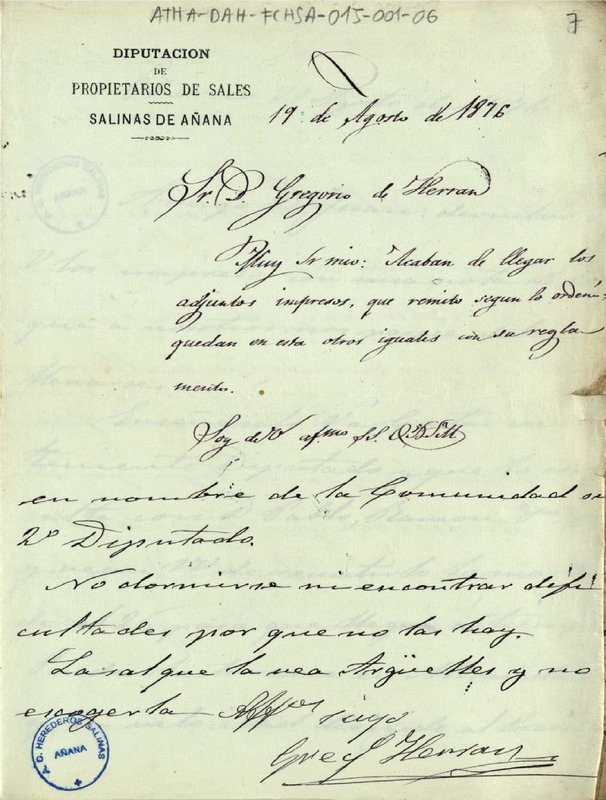 ATHA-DAH-FCHSA-015-001-06
7
DIPUTACION
DE
PROPIETARIOS DE SALES
SALINAS DE AÑANA
19 de Agosto de 1876
Sr. D. Gregorio de Herran
Muy Sr mio: Acaban de llegar los
adjuntos impresos, que remito segun lo ordenó:
quedan en esta otros iguales con su regla
mento.
Soy de V afmo S.S. Q B S M
en nombre de la Comunidad su
2º Diputado.
No dormirse ni encontrar difi
cultades por que no las hay.
La sal que la vea Argüelles y no
escogerla
suyo
Greg Herran
A. C. HEREDEROS SALINAS
AÑANA